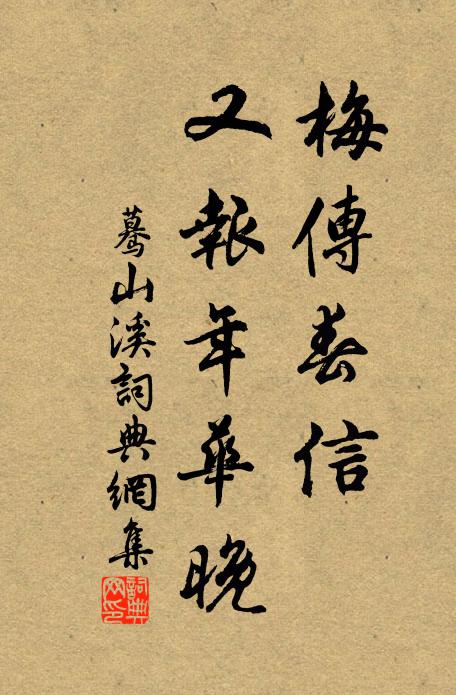 梅傳春信
又報年華晚
驀山溪詞典網集
詞典网印